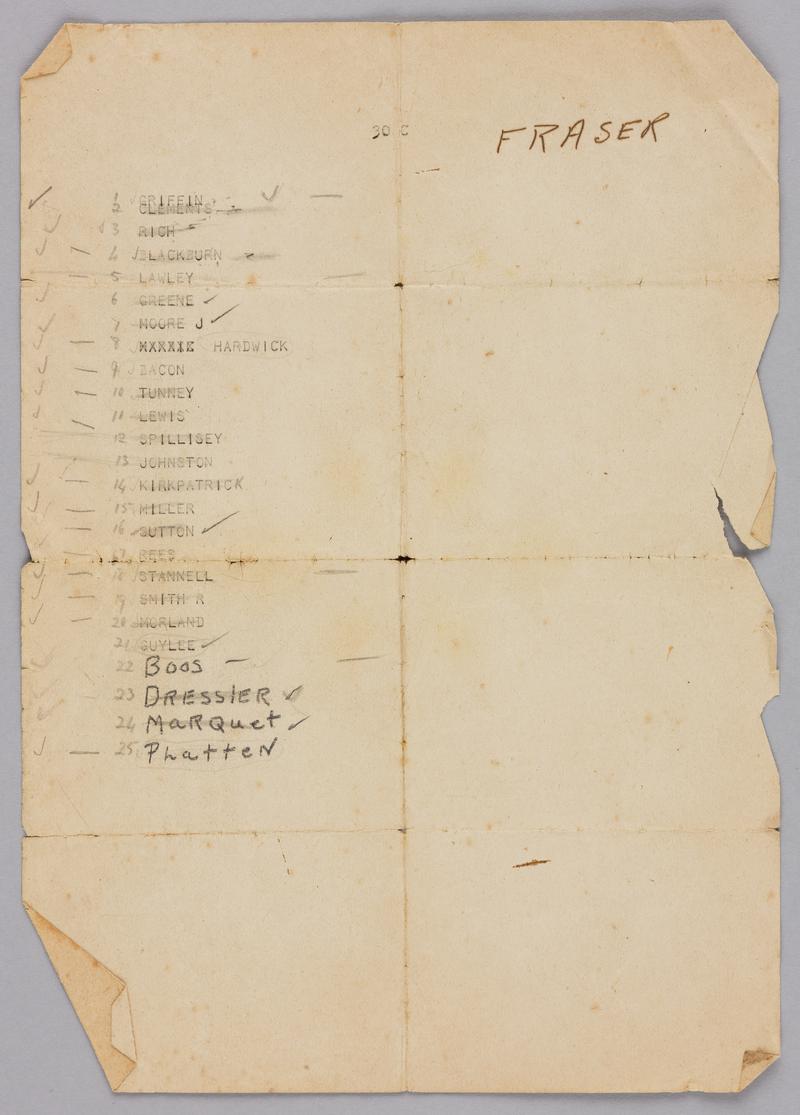 30 C
FRASER
1 GRIFFIN
2 CLEMENTS
3 RICH
4 BLACKBURN
5 LAWLEY
6 GREENE
7 MOORE J
8 HARDWICK
9 BACON
10 TUNNEY
11 LEWIS
12 SPILLISEY
13 JOHNSTON
14 KIRKPATRICK
15 MILLER
16 SUTTON
17 REES
18 STANNELL
19 SMITH R
20 MORLAND
21 GUYLEE
22 BOOS
23 DRESSIER
24 MaRQuet
25 PLatteN